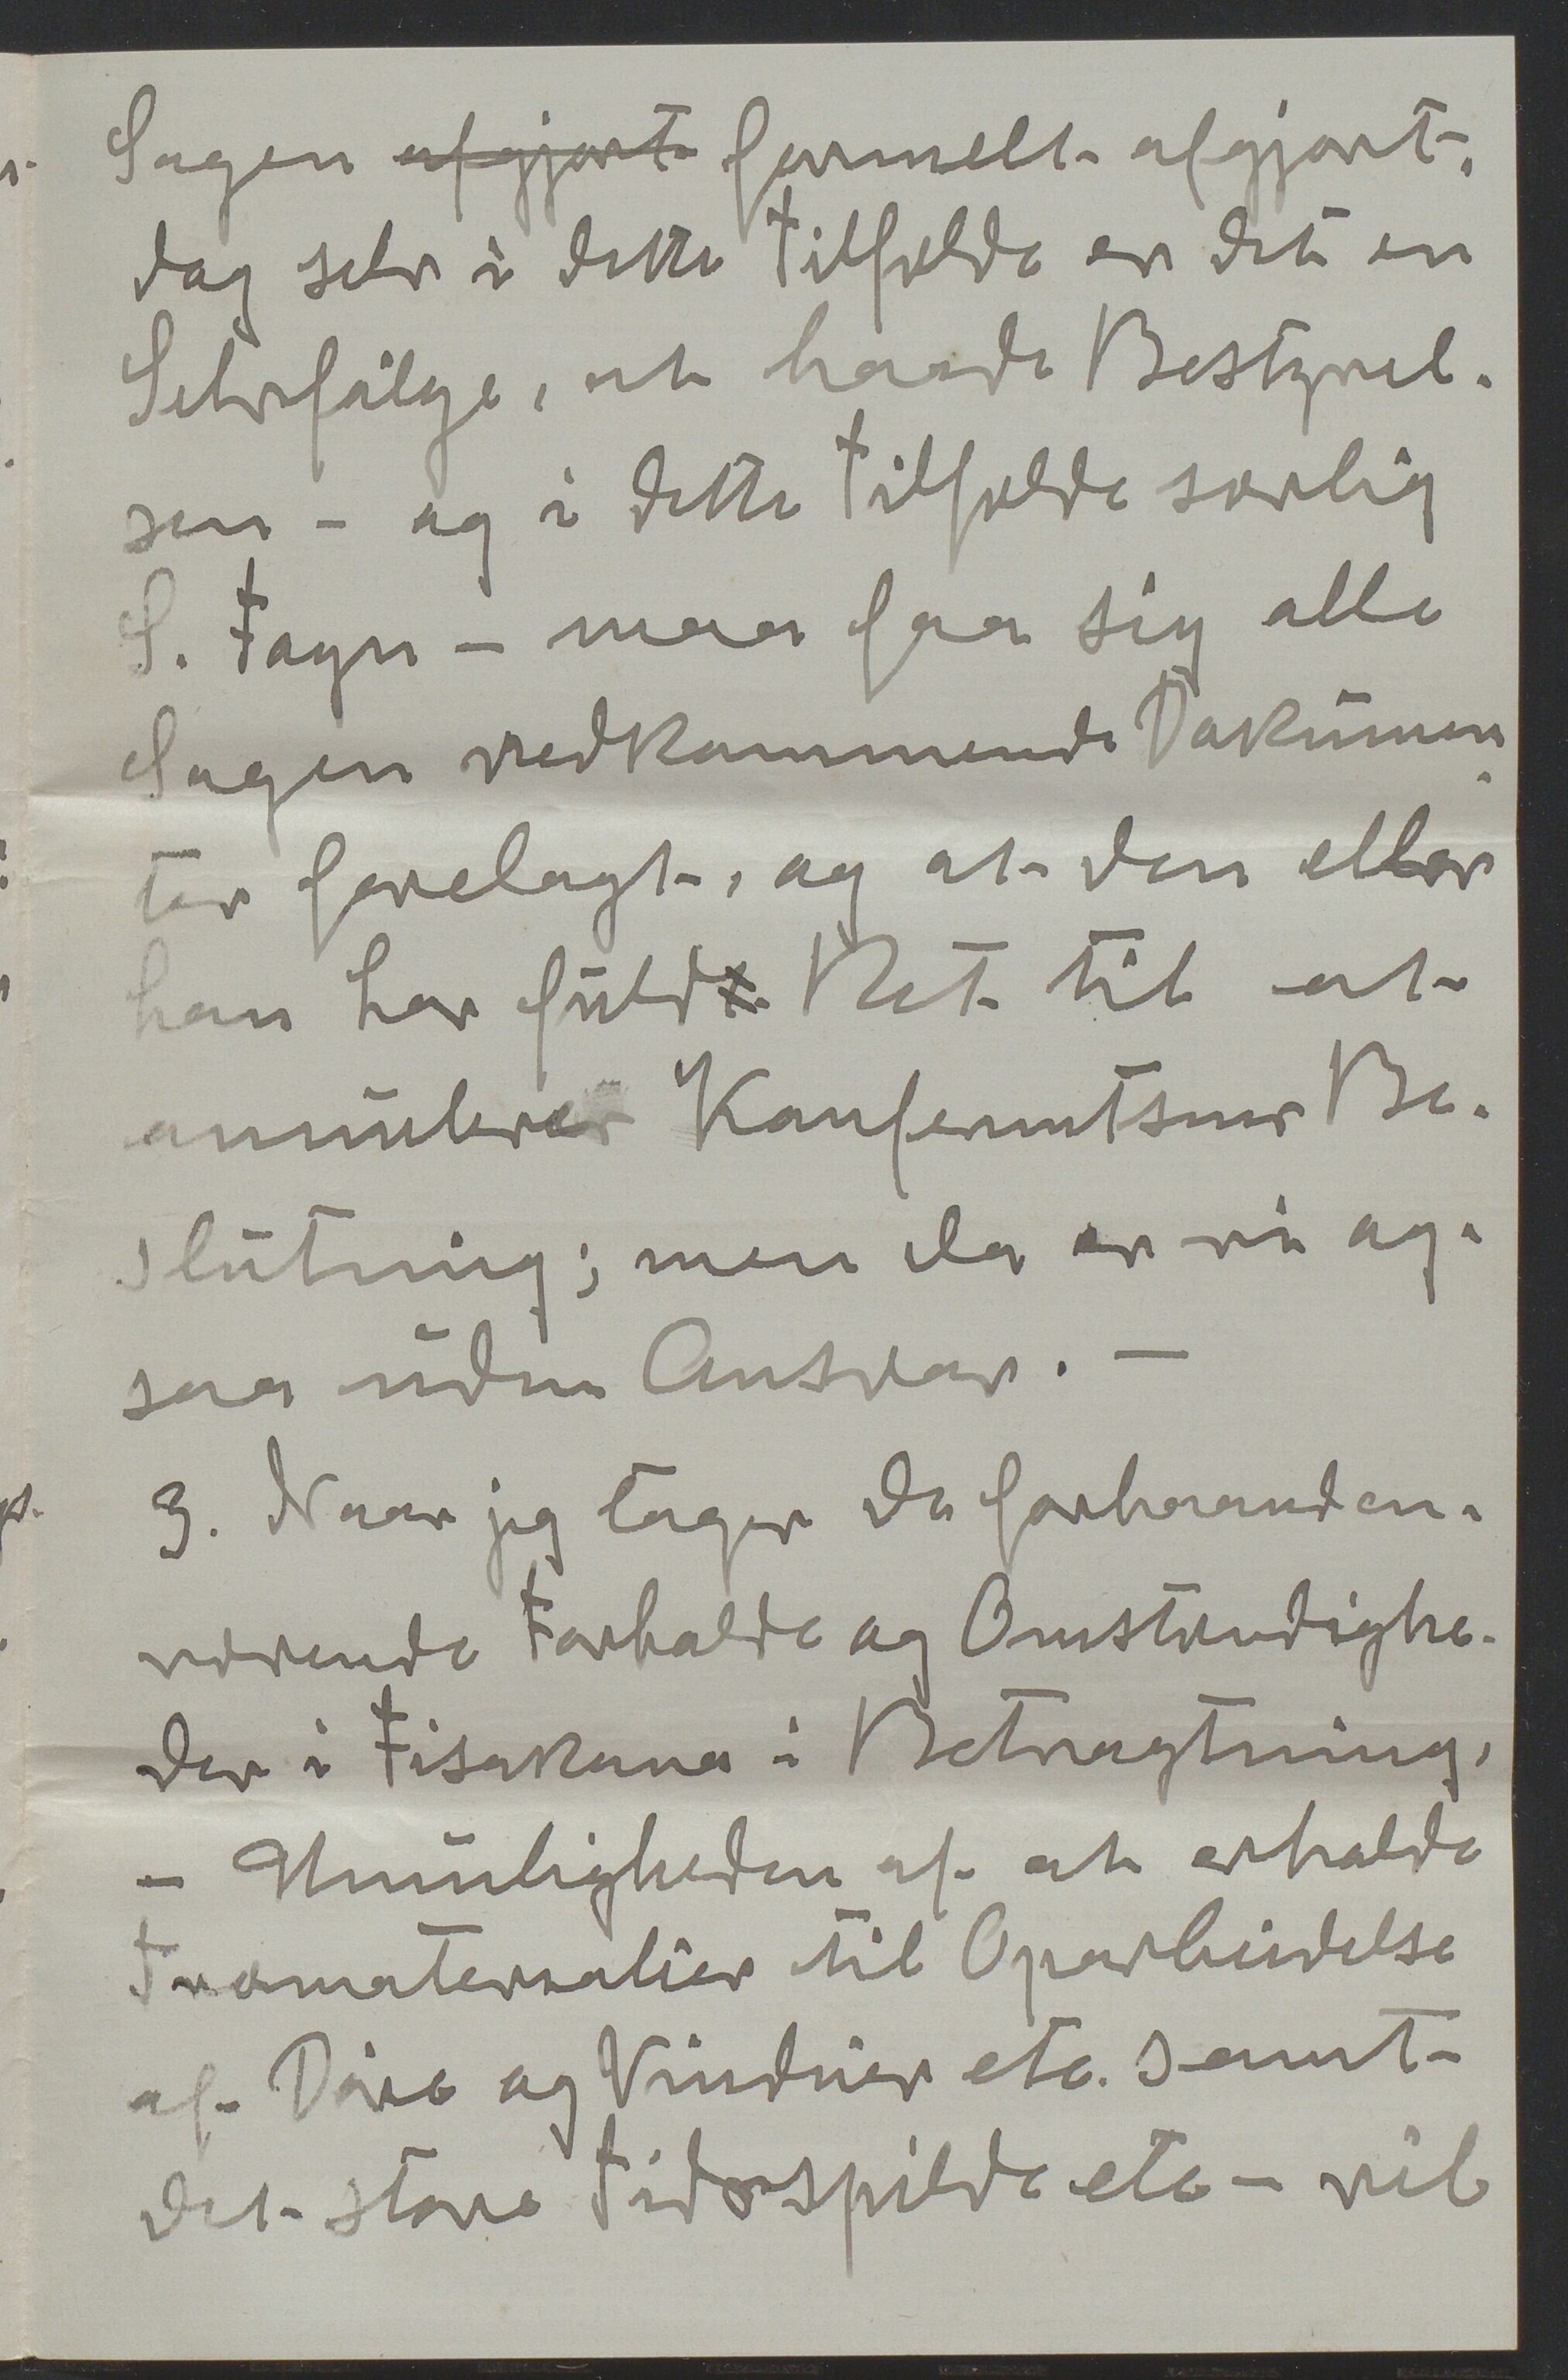 Sagen afgjort formelt afgjort,
dog selv i dette Tilfælde er det en
Selvfølge, at baade Bestyrel-
sen – og i dette Tilfælde særlig
S. Togn – maa faa sig alle
Sagen vedkommende Dokumen
ter forelagt, og at den eller
han har fuld Ret til at
annullere Konferentsens Be-
slutning; men da er vi og-
saa uden Ansvar. –
3. Naar jeg tager de forhaanden-
værende Forholde og Omstændighe-
der i Fisakana i Betragtning,
– Umuligheden af at erholde
Træmaterialier til Oparbeidelse
af Døre og Vinduer etc. samt
det store Tidsspilde etc – vil